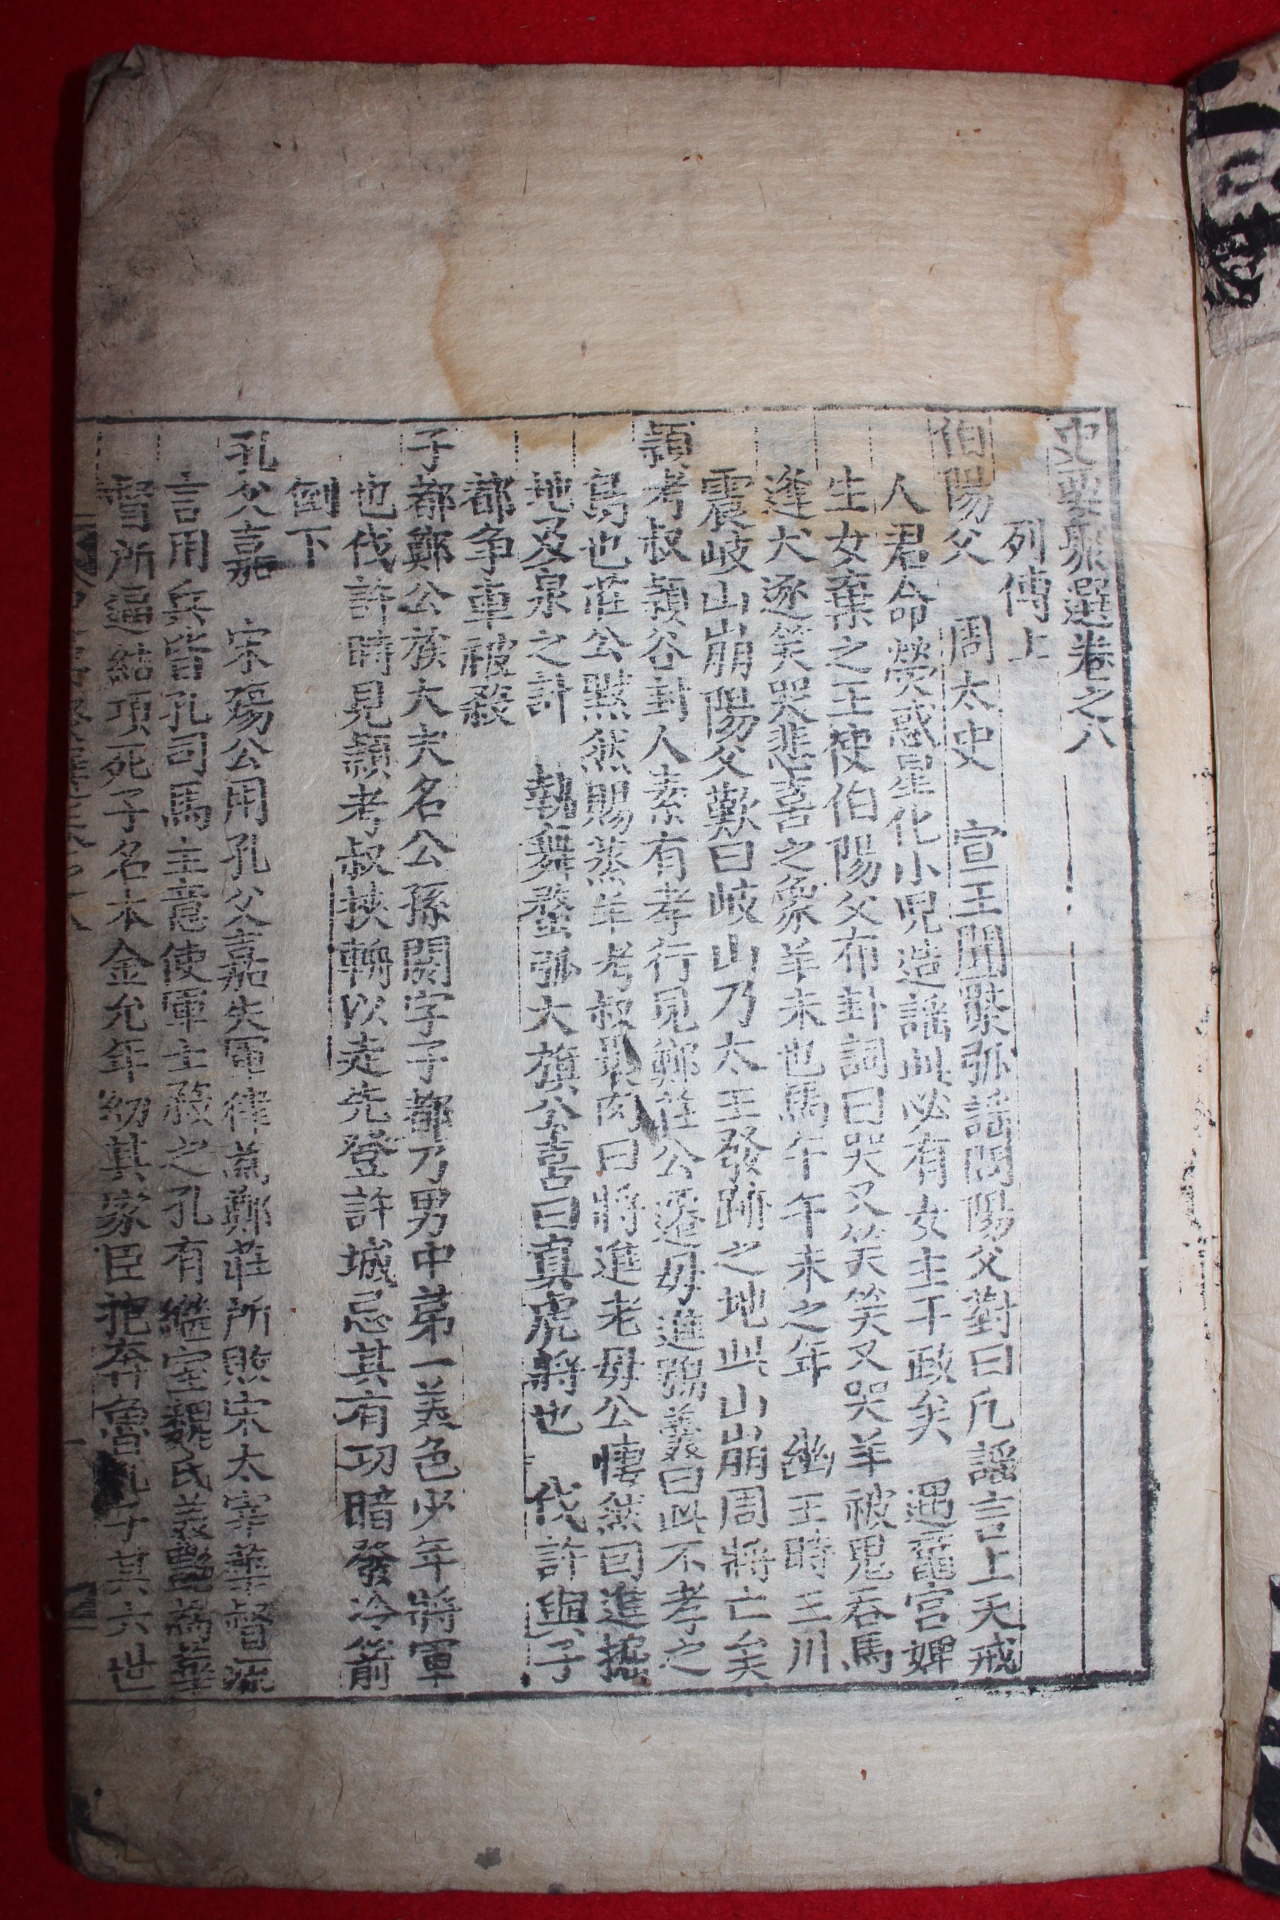 史要聚選卷之八
列傳上
伯陽父 周太史 宣王聞檿弧謠問陽父對曰凡謠言上天戒
人君命熒惑星化小兒造謠此必有女主干政矣 遇龍宮婢
生女棄之王使伯陽父布卦詞曰哭又笑笑又哭羊被鬼吞馬
逢犬逐笑哭悲喜之象羊未也馬午午未之年 幽王時三川
震岐山崩陽父歎曰岐山乃太王發跡之地此山崩周將亡矣
潁考叔潁谷封人素有孝行見鄭莊公遷母進鴞義曰此不孝之
鳥也莊公黙然賜蒸羊考叔裹肉曰將進老母公悽然回進掘
地及泉之計 執舞蝥弧大旗公喜曰真虎將也 伐許與子
都争車被殺
子都鄭公族大夫名公孫閼字子都乃男中第一美色少年將軍
也伐許時見潁考叔挾輈以走先登許城忌其有功暗發冷箭
倒下
孔父嘉 宋殤公用孔父嘉失軍律爲鄭莊所敗宋太宰華督流
言用兵皆孔司馬主意使軍士殺之孔有繼室魏氏美艶爲華
督所逼結項死子名木金允年幼其家臣抱奔魯孔子其六世